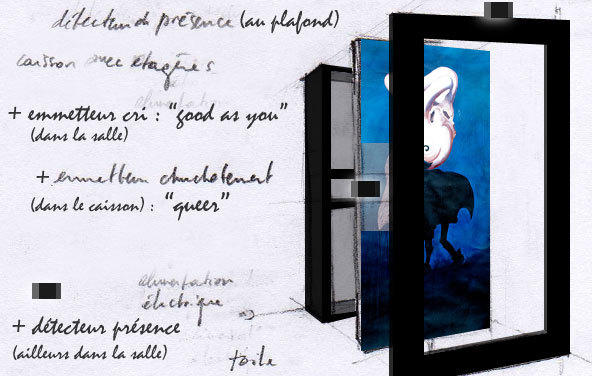 détecteur de présence (au plafond)
caisson avec étagères
+ emmetteur cri : “good as you”
(dans la salle)
+ emmetteur chuchotement
(dans le caisson) : “queer”
alimentation
électrique
+ détecteur présence
(ailleurs dans la salle)
toile